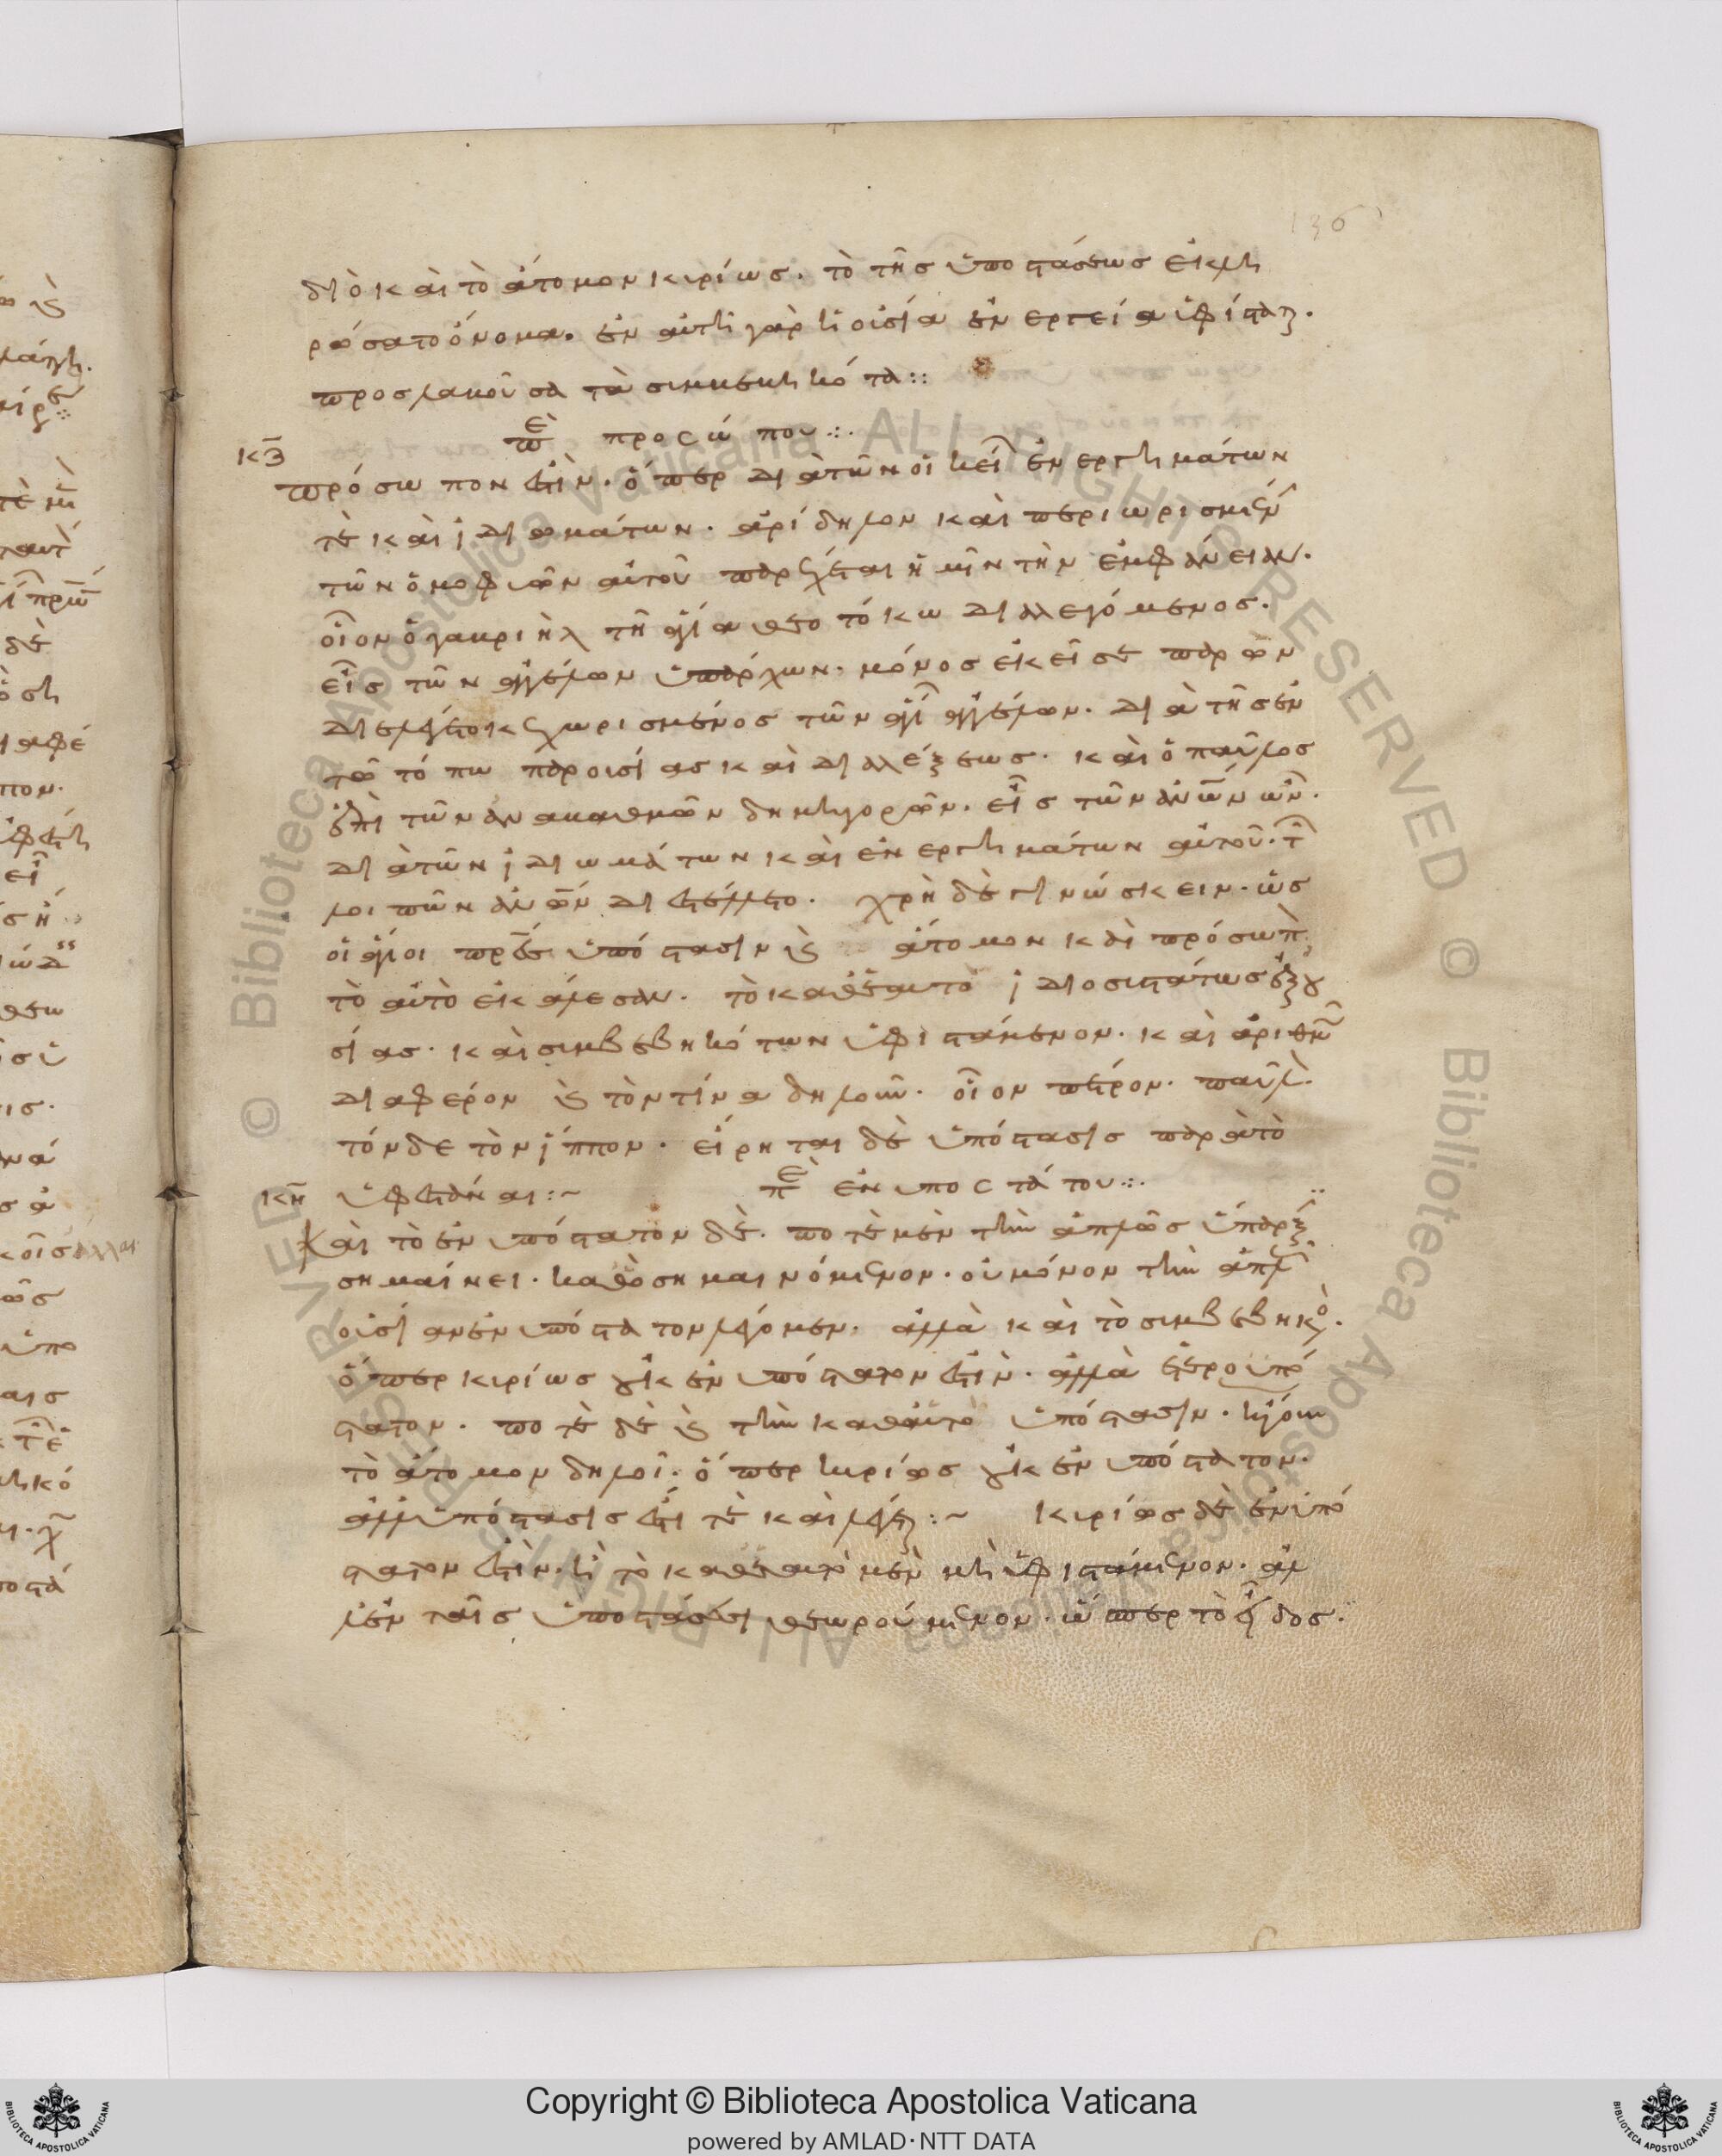 136
διὸ καὶ τὸ ἄτομον κυρίως. τὸ τῆς ὑποστάσεως ἐκλη
ρώσατο ὄνομα. ἐν αὐτῆ γὰρ ἡ οὐσία ἐνεργεία ὑφίσταται.
προσλαβοῦσα τὰ συμβεβηκότα::
πε προσώπου:.
κζ
πρόσωπον ἐστὶν. ὅπερ διὰ τῶν οἰκεί ἐνεργημάτων
τὲ καὶ ἰδιωμάτων. ἀρίδηλον καὶ περιωρισμέν
τῶν ὁμοφυῶν αὐτοῦ παρίσταται ἡμῖν τὴν ἐμφάνειαν.
οἷον ὁ γαβριὴλ τῆ ἁγία θεοτόκω διαλεγόμενος.
εἷς τῶν ἀγγέλων ὑπάρχων. μόνος ἐκεῖσε παρὼν
διελέγετο κεχωρισμένος τῶν ἀγγέλων. διὰ τῆς ἐν
τῶ τόπω παρουσίας καὶ διαλέξεως. καὶ ὁ παῦλος
ἐπὶ τῶν ἀναβαθμῶν δημηγορῶν. εἷς τῶν ἀνων ὢν.
διὰ τῶν ἰδιωμάτων καὶ ἐνεργημάτων αὐτοῦ. τ
λοιπῶν ἀνων διεστέλλετο. χρὴ δὲ γινώσκειν. ὡς
οἱ ἅγιοι πρες ὑπόστασιν κ ἄτομον καὶ πρόσωπ
τὸ αὐτὸ ἐκάλεσαν. τὸ καθ' ἑαυτὸ ἰδιοσυστάτως ἐξ οὐ
σίας. καὶ συμβεβηκότων ὑφιστάμενον. καὶ ἀριθμῶ
διαφέρον κ τὸν τίνα δηλοῦν. οἷον πέτρον. παῦλ.
τόνδε τὸν ἵππον. εἴρηται δὲ ὑπόστασις παρὰ τὸ
κη ὑφεστάναι:~ πε ἐνυποστάτου:.
καὶ τὸ ἐνυπόστατον δὲ. ποτὲ μὲν τὴν ἁπλῶς ὕπαρξ
σημαίνει. καθὸ σημαινόμενον. οὐ μόνον τὴν ἁπλ
οὐσίαν ἐνυπόστατον λέγομεν. ἀλλὰ καὶ τὸ συμβεβηκό.
ὅπερ κυρίως οὐκ ἐνυπόστατον ἐστὶν. ἀλλὰ ἑτεροϋπό
στατον. ποτὲ δὲ κ τὴν καθ' αὑτὸ ὑπόστασιν. ἤγουν
τὸ ἄτομον δηλοῖ. ὅπερ κυρίως οὐκ ἐνυπόστατον.
ἀλλ' ὑπόστασις ἐστί τὲ καὶ λέγεται:~ κυρίως δὲ ἐνυπό
στατον ἐστὶν. ἢ τὸ καθ' ἑαυτὸ μὲν μὴ ὑφιστάμενον. ἀλ
λ' ἐν ταῖς ὑποστάσεσι θεωρούμενον. ὥσπερ τὸ εἶδος.